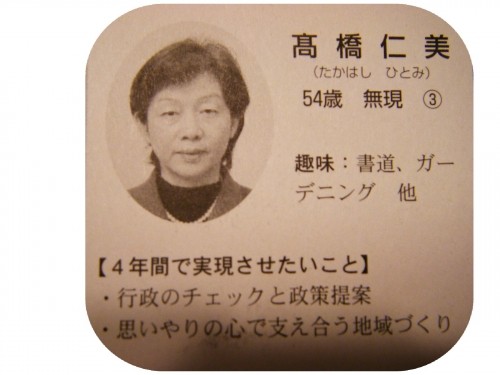 髙橋仁美
（たかはし　ひとみ）
54歳　無現　③
趣味：書道、ガー
デニング　他
【４年間で実現させたいこと】
・行政のチェックと政策提案
・思いやりの心で支え合う地域づくり